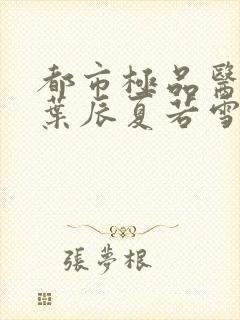 都市極品醫
葉辰夏若雪
張夢根